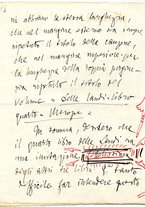 si abbiamo la stessa larghezza,
che nel margine esterno sia sempre
ripetuto il titolo della canzone,
che nel margine superiore, per
la larghezza della doppia pagina,
sia ripetuto il titolo del
volume « Delle Laudi - libro
quarto - Merope ».
In somma desidero che
il quarto libro delle Laudi, sia
una imitazione
degli altri tre libri. Quanto
difficile far intendere questo